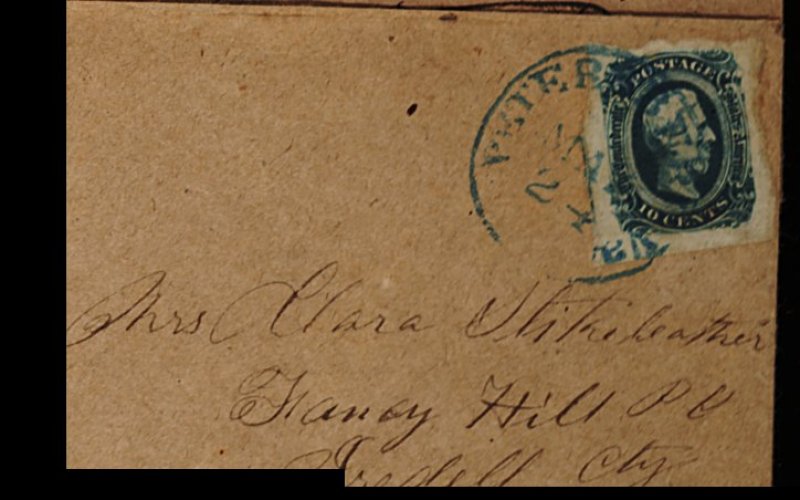 PETER
POSTAGE
10 CENTS
Mrs Clara Stikeleather
Fancy Hill P O
Iredell Cty